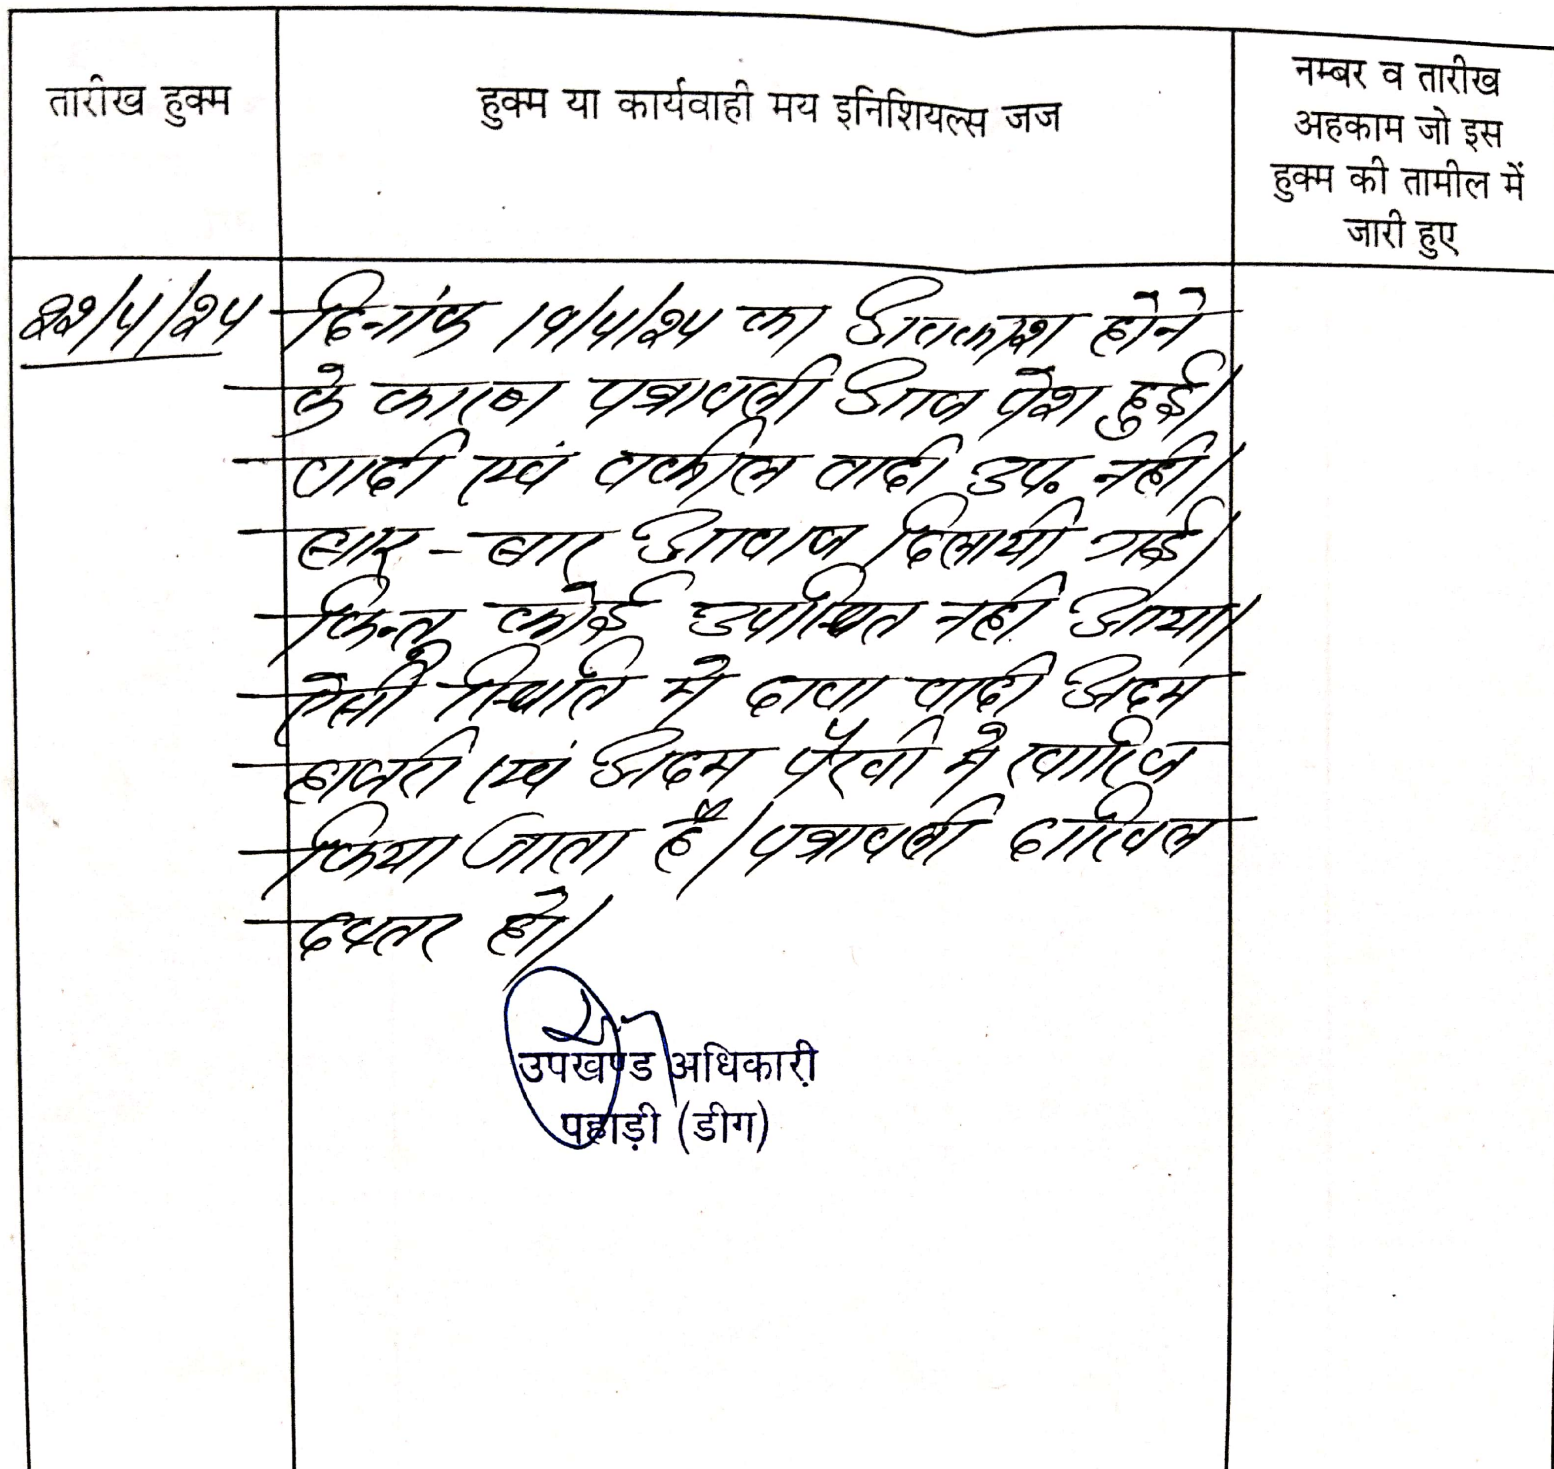 तारीख हुक्म
हुक्म या कार्यवाही मय इनिशियल्स जज
नम्बर व तारीख
अहकाम जो इस
हुक्म की तामील में
जारी हुए
22/4/24 दिनांक 19/4/24 का अवकाश होने
के कारण पत्रावली आज पेश हुई।
वादी एवं वकील वादी उप० नही।
बार-बार आवाज दिलायी गई।
किन्तु कोई उपस्थित नही आया।
ऐसी स्थिति मे दावा वादी अदम
हाजरी एवं अदम पैरवी मे खारिज
किया जाता है। पत्रावली दाखिल
दफ्तर हो।
उपखण्ड अधिकारी
पहाड़ी (डीग)